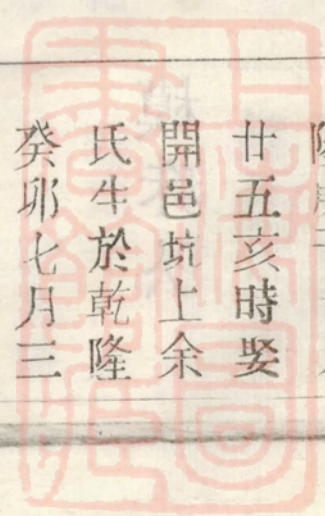 廿五亥時娶
開邑坑上余
氏生於乾隆
癸卯七月三